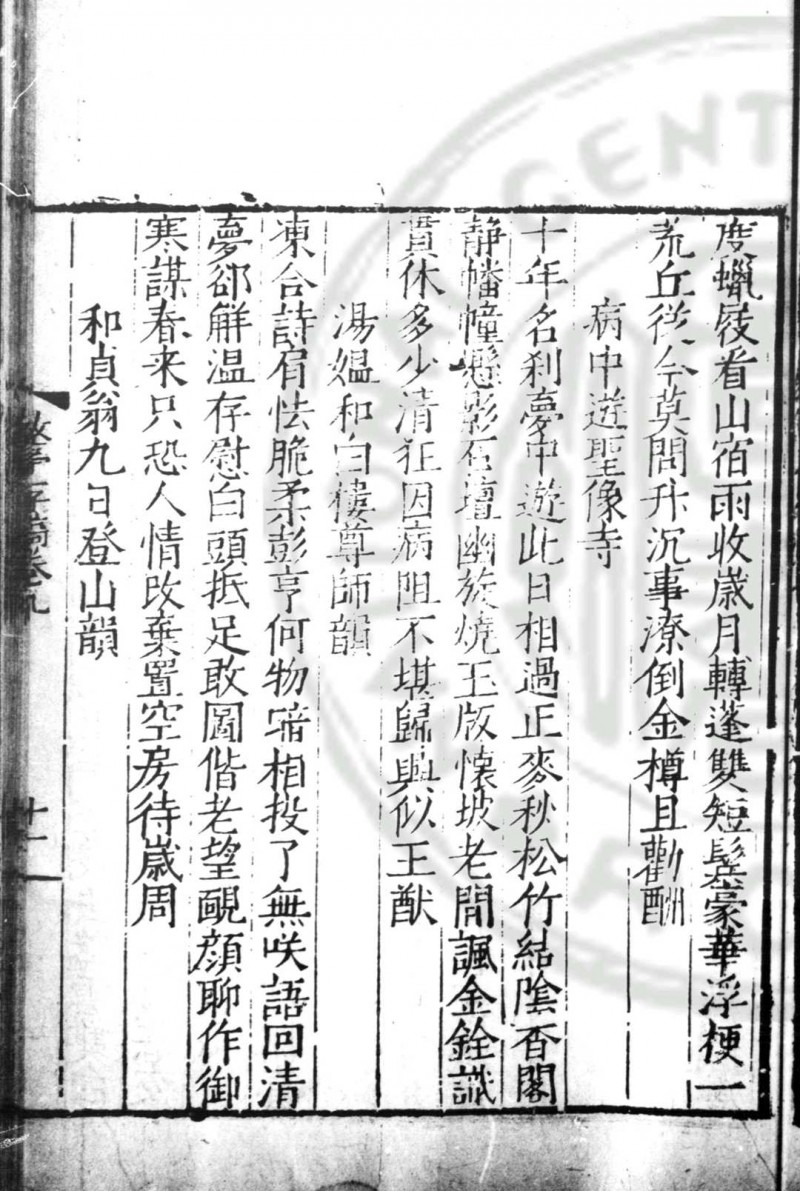 度蠟屐看山宿雨收歲月轉蓬雙短鬂豪華浮梗一
荒丘從今莫問升沉事潦倒金樽且勸酬
病中遊聖像寺
十年名刹夢中遊此日相過正麥秋松竹結陰香閣
静幡幢懸影石壇幽旋燒玉版懷坡老閒諷金銓識
貫休多少清狂因病阻不堪歸興似王猷
湯媼和白樓尊師韻
凍合詩肩怯脆柔彭亨何物喑相投了無咲語回清
夢郤解温存慰白頭抵足敢圖偕老望靦顔聊作御
寒謀春来只恐人情改棄置空房待歲周
和貞翁九日登山韻
存稿卷九
十一